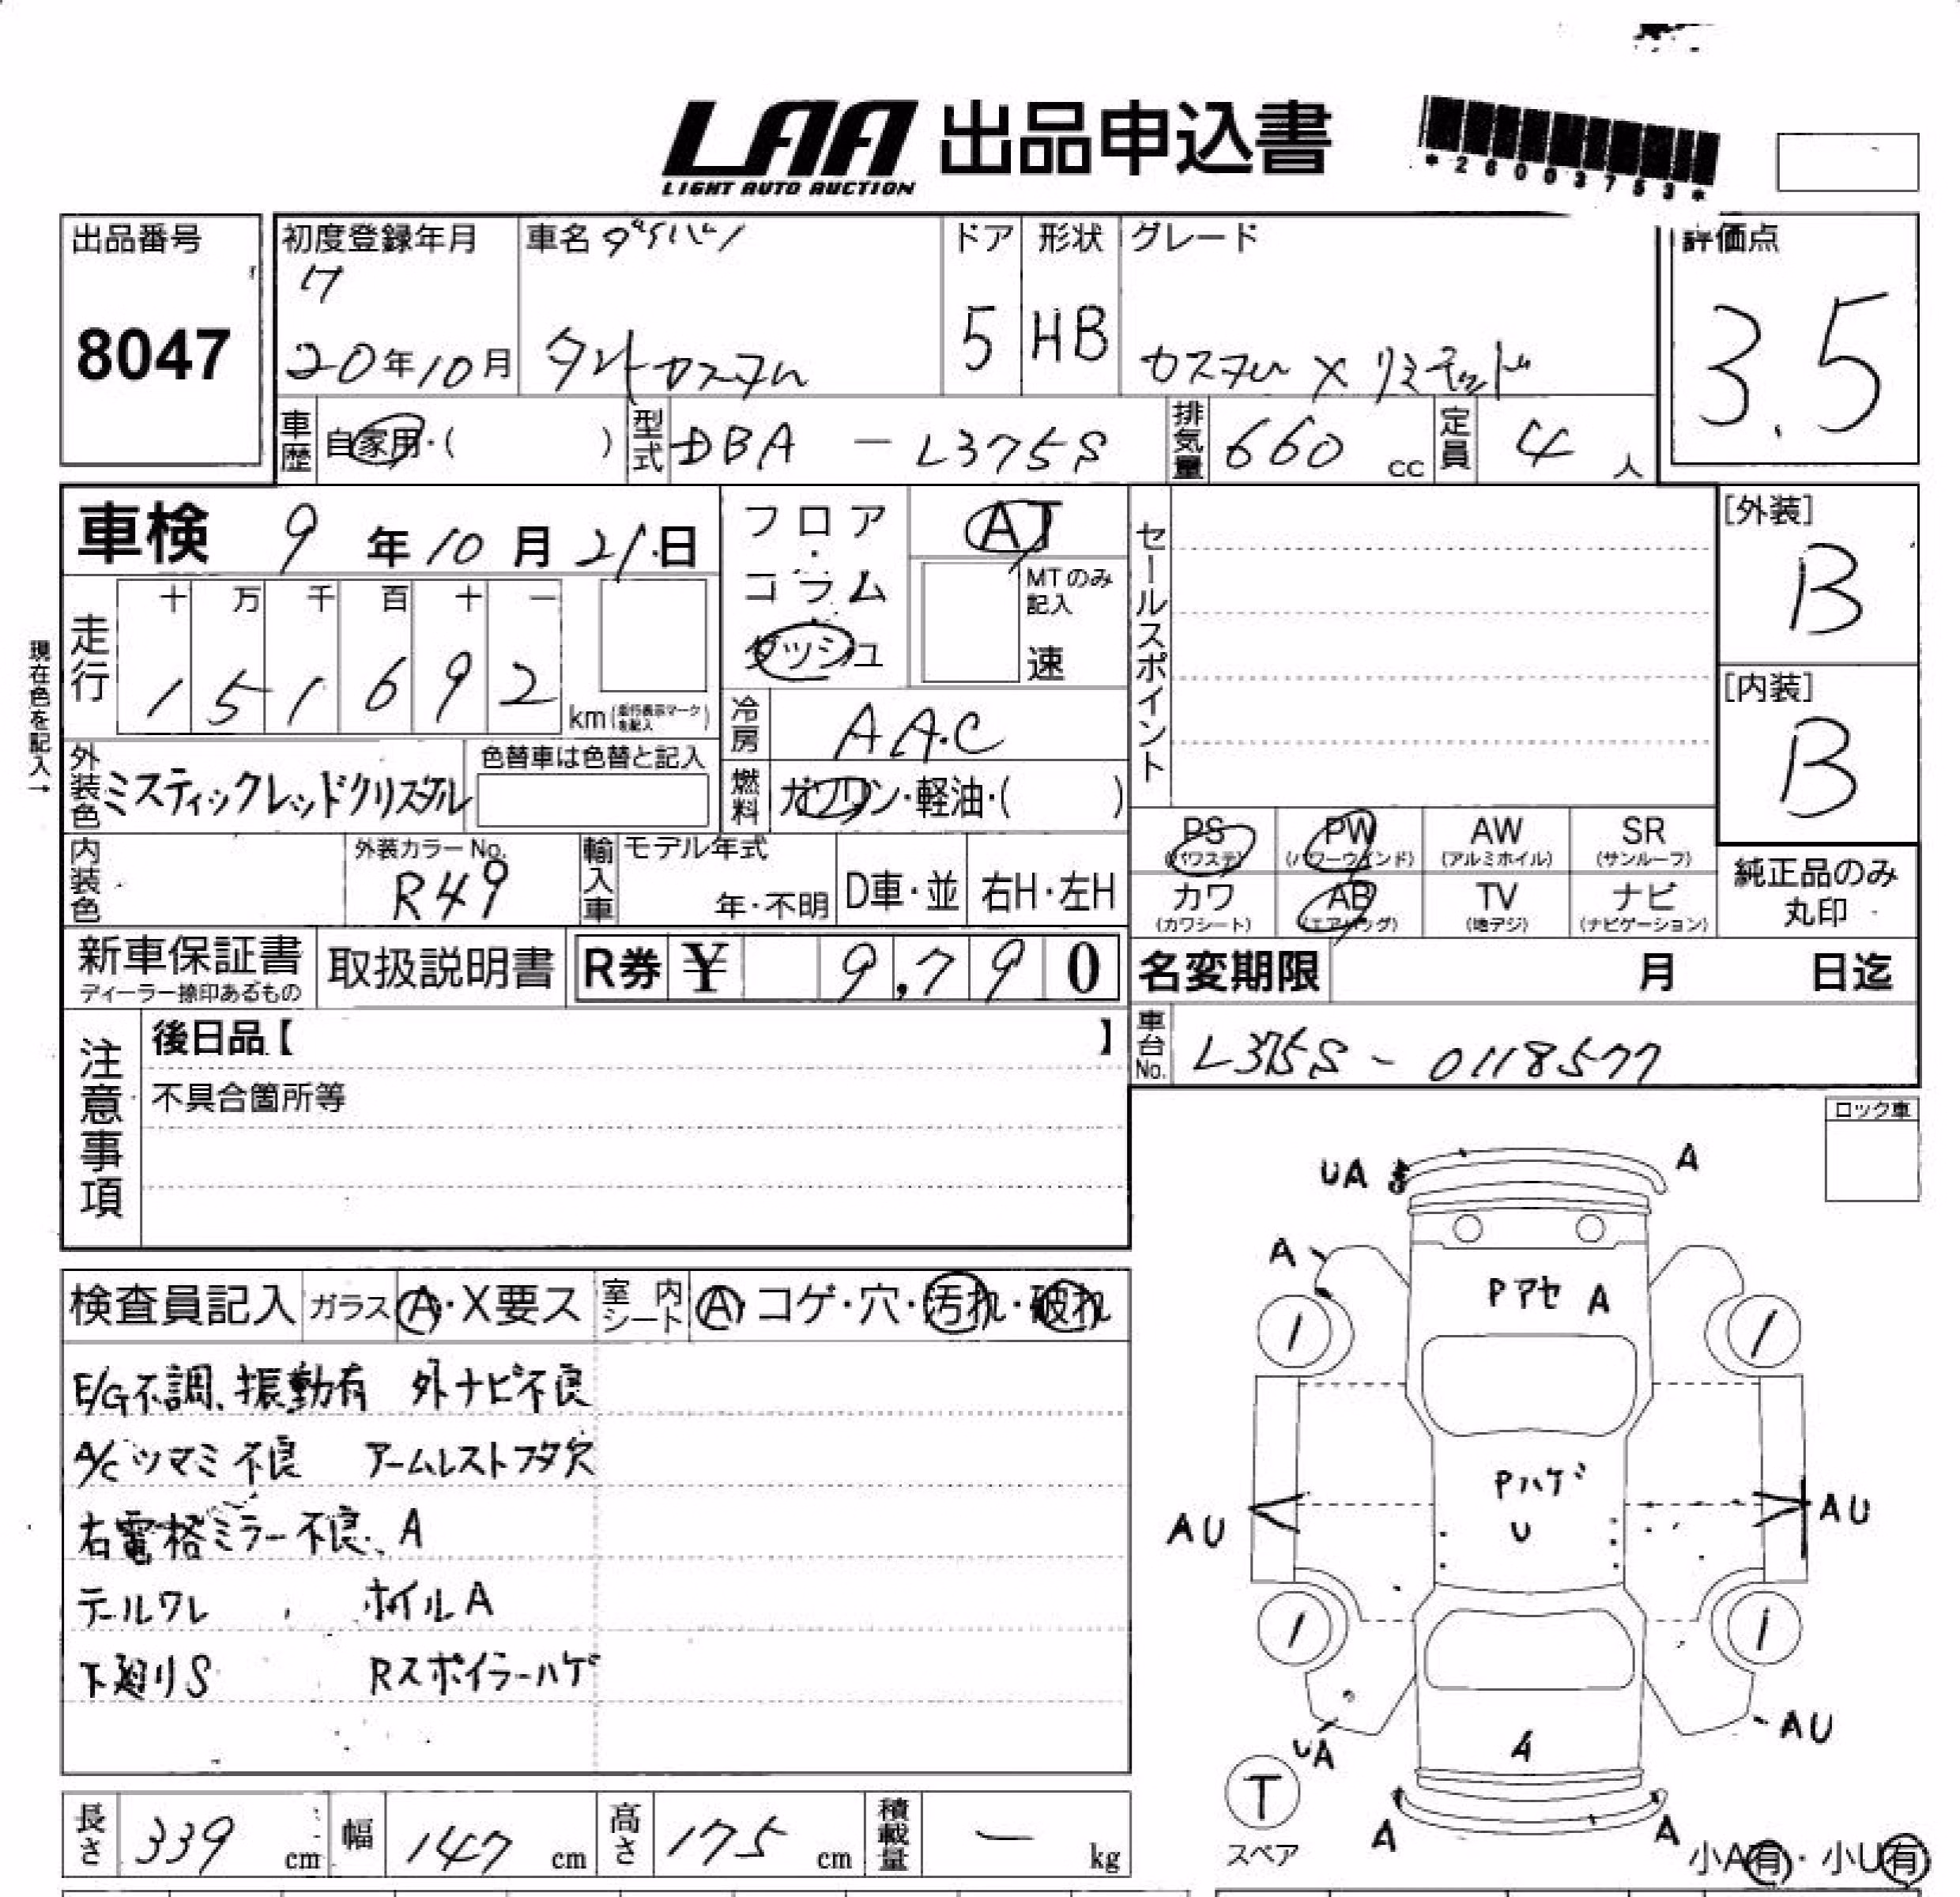 LAA 出品申込書
LIGHT AUTO AUCTION
*26003753*
出品番号
8047
初度登録年月
H
20年10月
車名 ダイハツ
タントカスタム
ドア
5
形状
HB
グレード
カスタム X リミテッド
評価点
3.5
車歴 自家用・( )
型式 DBA － L375S
排気量 660 cc
定員 4 人
車検 9 年 10 月 21日
フロア・コラム・ダッシュ
AT
MTのみ記入
速
セールスポイント
[外装]
B
[内装]
B
現在色を記入→
走行
十 万 千 百 十 一
1 5 1 6 9 2
km(走行表示マークを記入)
冷房 AAC
外装色 ミスティックレッドクリスタル
色替車は色替と記入
燃料 ガソリン・軽油・( )
内装色
外装カラーNo.
R49
輸入車
モデル年式
年・不明
D車・並
右H・左H
PS (パワステ)
PW (パワーウインド)
AW (アルミホイル)
SR (サンルーフ)
カワ (カワシート)
AB (エアバッグ)
TV (地デジ)
ナビ (ナビゲーション)
純正品のみ
丸印
新車保証書
ディーラー捺印あるもの
取扱説明書
R券 ¥ 9,790
名変期限 月 日迄
注意事項
後日品【 】
不具合箇所等
車台No. L375S - 0118577
ロック車
検査員記入
ガラス A・X要ス
室内シート A・コゲ・穴・汚れ・破れ
E/G不調、振動有 外ナビ不良
A/Cツマミ不良 アームレストフタ欠
右電格ミラー不良、A
テールワレ ホイルA
下廻りS Rスポイラーハゲ
UA A
A
Pアセ A
Pハゲ
U
AU AU
UA AU
A
A A
T
スペア
小A有・小U有
長さ 339 cm
幅 147 cm
高さ 175 cm
積載量 — kg